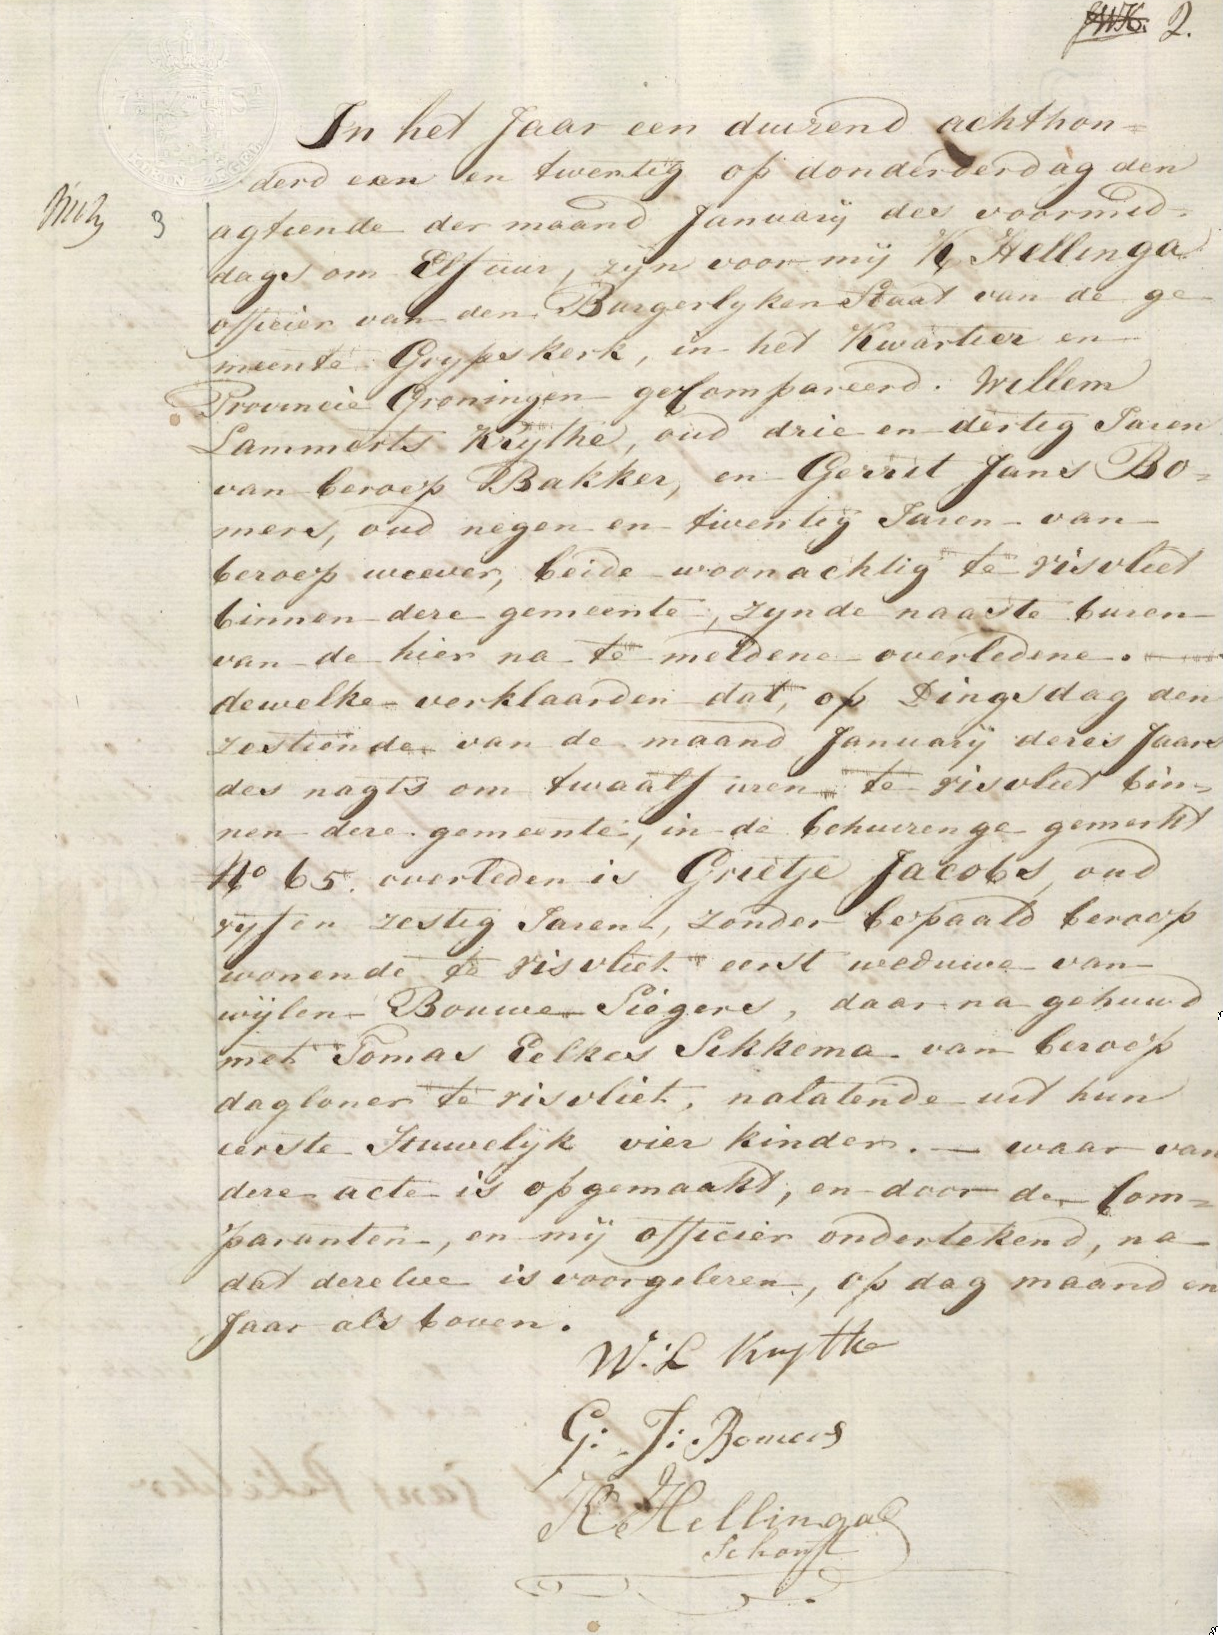 2.
In het Jaar een duizend achthon=
derd een en twentig op donderderdag den
3
agtiende der maand Januarij des voormid=
dags om Elf uur, zijn voor mij K Hellinga
officier van den Burgerlyken Staat van de ge
meente Grypskerk, in het Kwartier en
Provincie Groningen geCompareerd. Willem
Lammerts Krijthe, oud drie en dertig Jaren
van beroep Bakker, en Gerrit Jans Bo=
mers, oud negen en twentig Jaren van
beroep weever, beide woonachtig te visvliet
binnen deze gemeente, zynde naaste buren
van de hier na te meldene overledene.
dewelke verklaarden dat, op Dingsdag den
zestiende van de maand Januarij dezes Jaars
des nagts om twaalf uren te visvliet bin=
nen deze gemeente, in de behuizenge gemerkt
No 65. overleden is Grietje Jacobs, oud
vyf en zestig Jaren, zonder bepaald beroep
wonende te visvliet eerst weduwe van
wijlen Bouwe Siegers, daar na gehuwd
met Tomas Eelkes Sikkema van beroep
dagloner te visvliet, nalatende uit hun
eerste Huwelijk vier kinder. — waar van
deze acte is opgemaakt, en door de Com=
paranten, en mij officier ondertekend, na
dat dezelve is voorgelezen, op dag maand en
Jaar als boven.
W: L Krijthe
G: J: Bomers
K Hellinga
Schout